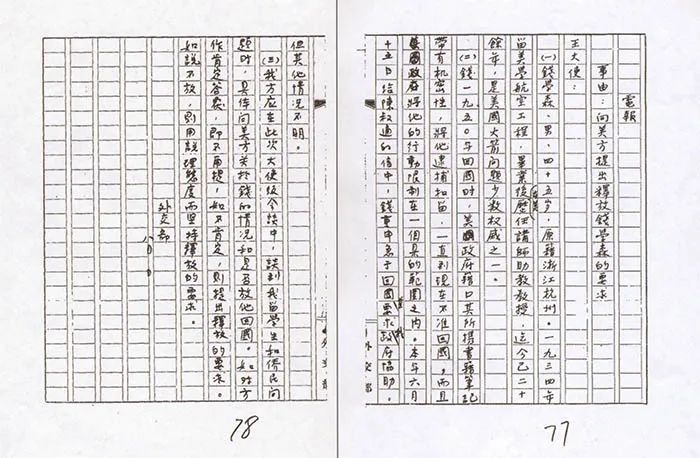 電報
事由:向美方提出釋放錢學森的要求
王大使:
(一)錢學森、男、四十五岁,原籍浙江杭州。一九三四年
留美學航空工程,畢業後在美歷任講師助教教授,迄今已二十
餘年,是美國火箭问題少数权威之一。
(二)錢一九五〇年回國时,美國政府藉口其所携書籍筆記
帶有机密性,将他逮捕扣留,一直到現在不准回國,而且
美國政府将他的行動限制在一個县的範圍之内。本年六月
十五日给陳叔通的信中,錢重申急于回國,要求我政府協助。
77
但其他情况不明。
(三)我方应在此次大使级会談中,談到我留學生和僑民问
题时,具体向美方关於錢的情况和是否放他回國。如对方
作肯定答复,即不再提,如不肯定,則提出釋放的要求。
如說不放,則用說理態度而堅持釋放的要求。
外交部
78